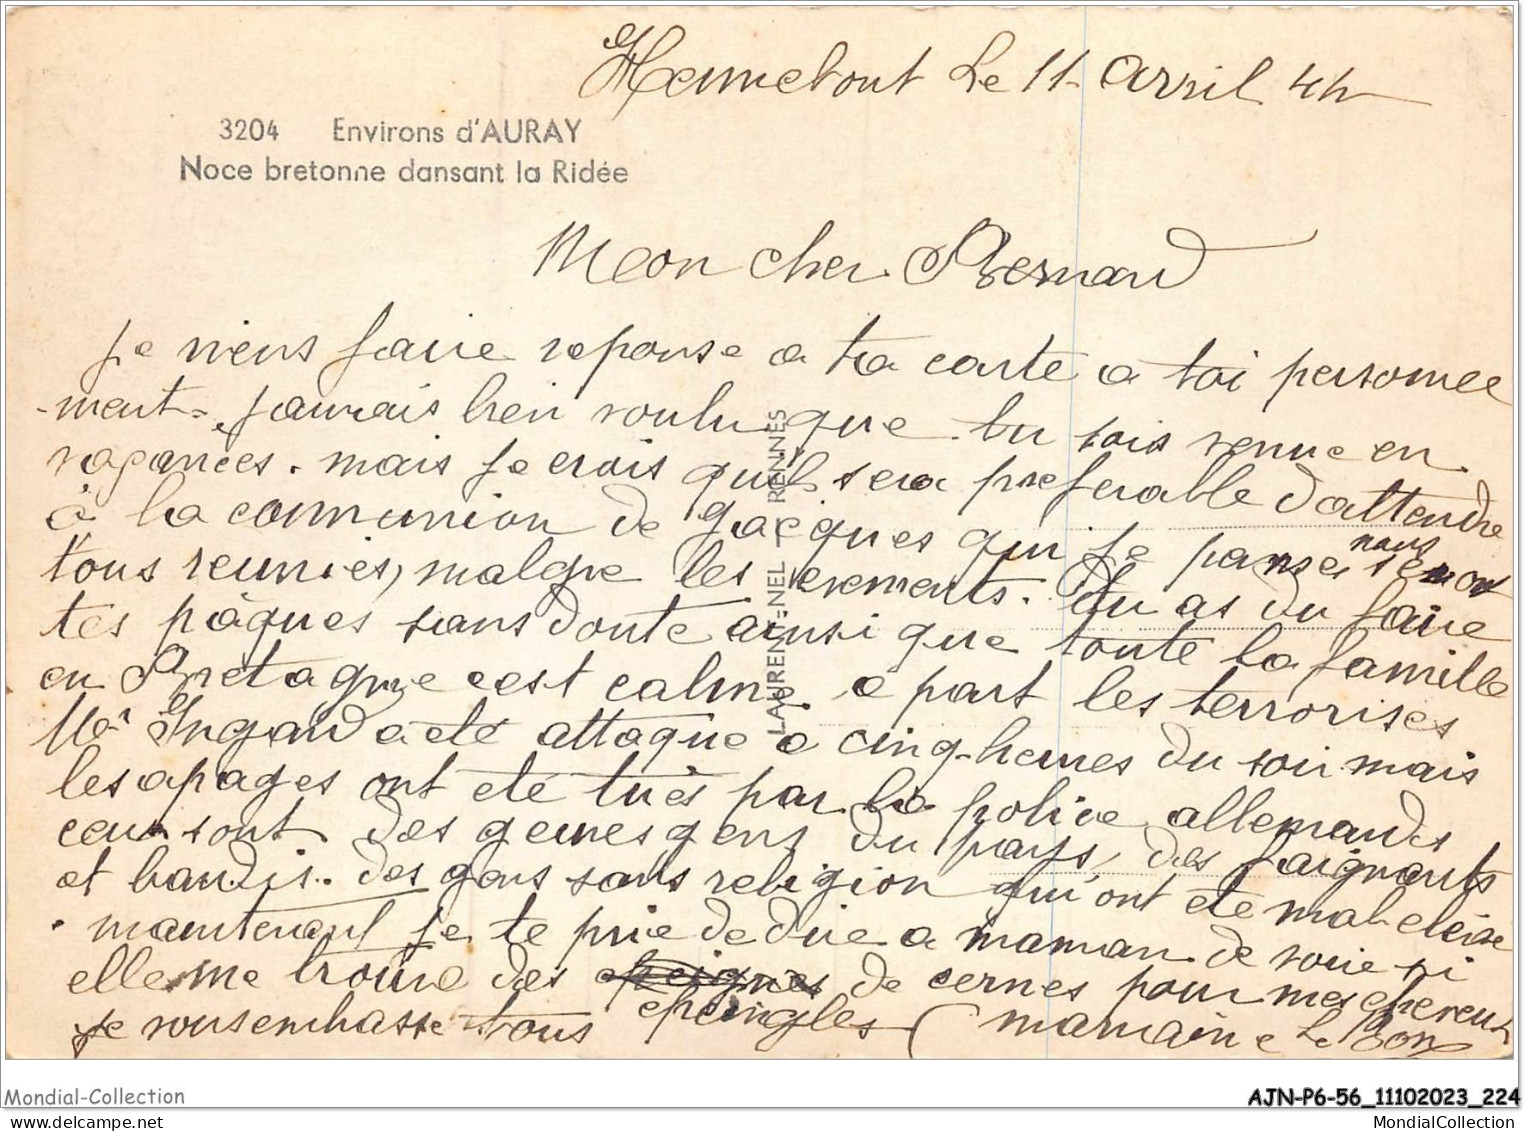 Hennebont Le 11 avril 44
3204 Environs d'AURAY
Noce bretonne dansant la Ridée
Mon cher Bernard
je viens faire reponse a ta carte a toi personnelle
-ment. j'aurais bien voulu que tu sois venue en
vaçances. mais je crois qu'il sera preferable d'attendre
à la communion de jacques qui je panse nous serons
tous reunies, malgre les evenements. Tu as du faire
tes pâques sans doute ainsi que toute la famille
en Bretagne c'est calme a part les terrorises
Mr Ingand a été attaque a cinq hemes du soir mais
les apages ont été tués par la police allemande
ceux sont des geunes gens du pays, des faignants
et bandis. des gens sans religion qui ont été mal elevée
maintenant je te prie de dire a maman de voire si
elle me trouve des de cornes pour mes cheveux
epeingles
je vous embrasse tous (mamaine Le Bon
LAURENT-NEL - RENNES
Mondial-Collection
AJN-P6-56_11102023_224
MondialCollection